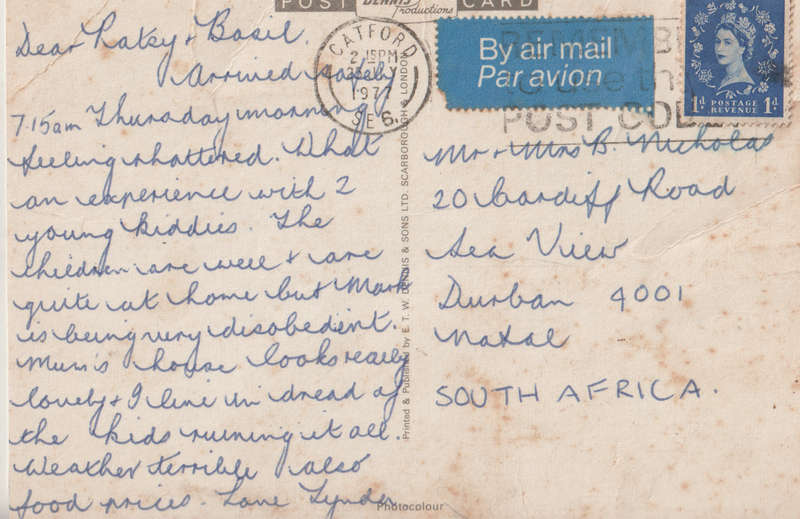 POST DENNIS Productions CARD
Dear Patsy + Basil.
Arrived safely
7.15am Thursday morning
feeling shattered. What
an experience with 2
young kiddies. The
children are well & are
quite at home but Mark
is being very disobedient.
Mum's house looks really
lovely & I live in dread of
the kids ruining it all.
Weather terrible also
food prices. Love Lynda
CATFORD
2.15PM
1977
S.E.6.
Printed & Published by E. T. W. DENNIS & SONS LTD. SCARBOROUGH & LONDON
Photocolour
By air mail
Par avion
REMEMBER
POST CODE
1d POSTAGE 1d
REVENUE
Mr + Mrs B. Nicholas
20 Cardiff Road
Sea View
Durban 4001
Natal
SOUTH AFRICA.